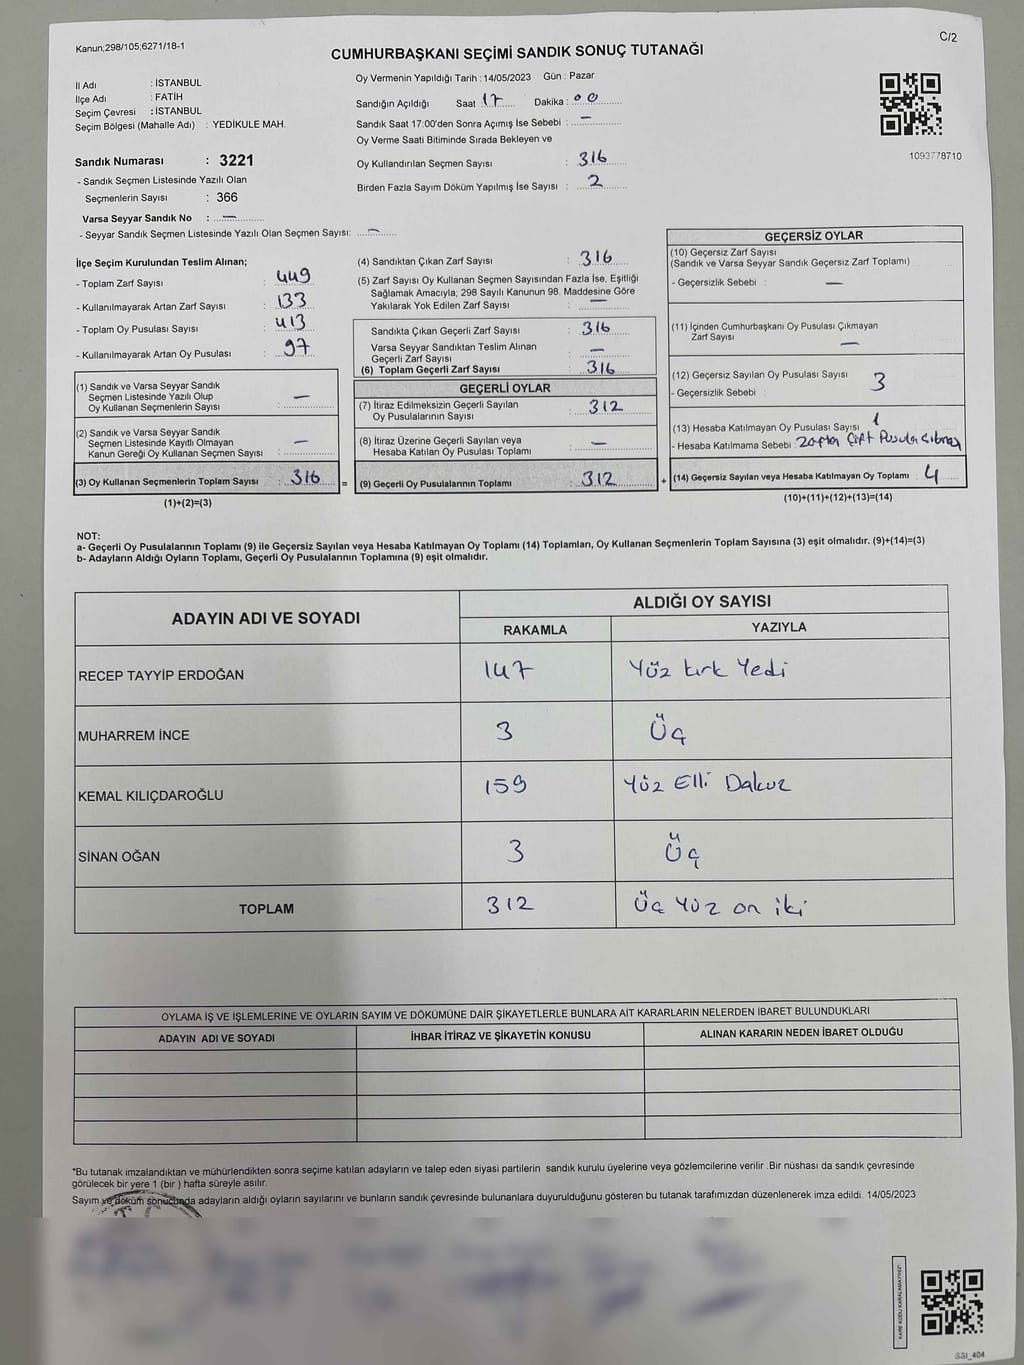 Kanun;298/105;6271/18-1
C/2
CUMHURBAŞKANI SEÇİMİ SANDIK SONUÇ TUTANAĞI
İl Adı : İSTANBUL
İlçe Adı : FATİH
Seçim Çevresi : İSTANBUL
Seçim Bölgesi (Mahalle Adı) : YEDİKULE MAH.
Oy Vermenin Yapıldığı Tarih : 14/05/2023 Gün : Pazar
Sandığın Açıldığı Saat 17 Dakika : 00
Sandık Saat 17:00'den Sonra Açımış İse Sebebi : —
Oy Verme Saati Bitiminde Sırada Bekleyen ve
Oy Kullandırılan Seçmen Sayısı : 316
Birden Fazla Sayım Döküm Yapılmış İse Sayısı : 2
1093778710
Sandık Numarası : 3221
- Sandık Seçmen Listesinde Yazılı Olan
Seçmenlerin Sayısı : 366
Varsa Seyyar Sandık No : —
- Seyyar Sandık Seçmen Listesinde Yazılı Olan Seçmen Sayısı: —
İlçe Seçim Kurulundan Teslim Alınan;
- Toplam Zarf Sayısı : 449
- Kullanılmayarak Artan Zarf Sayısı : 133
- Toplam Oy Pusulası Sayısı : 413
- Kullanılmayarak Artan Oy Pusulası : 97
(1) Sandık ve Varsa Seyyar Sandık
Seçmen Listesinde Yazılı Olup
Oy Kullanan Seçmenlerin Sayısı : —
(2) Sandık ve Varsa Seyyar Sandık
Seçmen Listesinde Kayıtlı Olmayan
Kanun Gereği Oy Kullanan Seçmen Sayısı : —
(3) Oy Kullanan Seçmenlerin Toplam Sayısı : 316
(1)+(2)=(3)
=
(4) Sandıktan Çıkan Zarf Sayısı : 316
(5) Zarf Sayısı Oy Kullanan Seçmen Sayısından Fazla İse, Eşitliği
Sağlamak Amacıyla; 298 Sayılı Kanunun 98. Maddesine Göre
Yakılarak Yok Edilen Zarf Sayısı : —
Sandıkta Çıkan Geçerli Zarf Sayısı : 316
Varsa Seyyar Sandıktan Teslim Alınan
Geçerli Zarf Sayısı : —
(6) Toplam Geçerli Zarf Sayısı : 316
GEÇERLİ OYLAR
(7) İtiraz Edilmeksizin Geçerli Sayılan
Oy Pusulalarının Sayısı : 312
(8) İtiraz Üzerine Geçerli Sayılan veya
Hesaba Katılan Oy Pusulası Toplamı : —
(9) Geçerli Oy Pusulalarının Toplamı : 312
+
GEÇERSİZ OYLAR
(10) Geçersiz Zarf Sayısı
(Sandık ve Varsa Seyyar Sandık Geçersiz Zarf Toplamı)
- Geçersizlik Sebebi : —
(11) İçinden Cumhurbaşkanı Oy Pusulası Çıkmayan
Zarf Sayısı —
(12) Geçersiz Sayılan Oy Pusulası Sayısı : 3
- Geçersizlik Sebebi :
(13) Hesaba Katılmayan Oy Pusulası Sayısı : 1
- Hesaba Katılmama Sebebi : Zaftan Çift Pusula
(14) Geçersiz Sayılan veya Hesaba Katılmayan Oy Toplamı : 4
(10)+(11)+(12)+(13)=(14)
NOT:
a- Geçerli Oy Pusulalarının Toplamı (9) ile Geçersiz Sayılan veya Hesaba Katılmayan Oy Toplamı (14) Toplamları, Oy Kullanan Seçmenlerin Toplam Sayısına (3) eşit olmalıdır. (9)+(14)=(3)
b- Adayların Aldığı Oyların Toplamı, Geçerli Oy Pusulalarının Toplamına (9) eşit olmalıdır.
ADAYIN ADI VE SOYADI
ALDIĞI OY SAYISI
RAKAMLA YAZIYLA
RECEP TAYYİP ERDOĞAN 147 Yüz kırk Yedi
MUHARREM İNCE 3 Üç
KEMAL KILIÇDAROĞLU 159 Yüz Elli Dakuz
SİNAN OĞAN 3 Üç
TOPLAM 312 Üç Yüz on iki
OYLAMA İŞ VE İŞLEMLERİNE VE OYLARIN SAYIM VE DÖKÜMÜNE DAİR ŞİKAYETLERLE BUNLARA AİT KARARLARIN NELERDEN İBARET BULUNDUKLARI
ADAYIN ADI VE SOYADI İHBAR İTİRAZ VE ŞİKAYETİN KONUSU ALINAN KARARIN NEDEN İBARET OLDUĞU
*Bu tutanak imzalandıktan ve mühürlendikten sonra seçime katılan adayların ve talep eden siyasi partilerin sandık kurulu üyelerine veya gözlemcilerine verilir .Bir nüshası da sandık çevresinde
görülecek bir yere 1 (bir ) hafta süreyle asılır.
Sayım ve döküm sonucunda adayların aldığı oyların sayılarını ve bunların sandık çevresinde bulunanlara duyurulduğunu gösteren bu tutanak tarafımızdan düzenlenerek imza edildi. 14/05/2023
T.C
KARE KODU KARALAMAYINIZ!
SSI_404